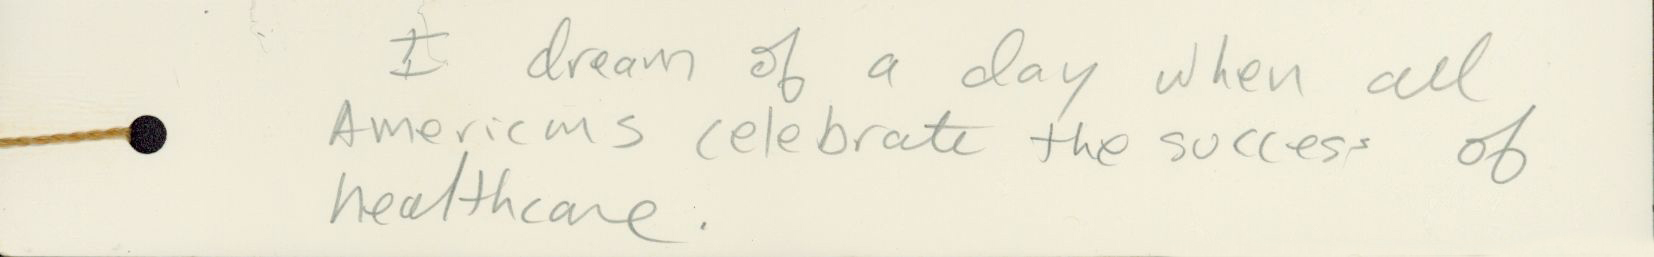 I dream of a day when all
Americans celebrate the success of
healthcare.